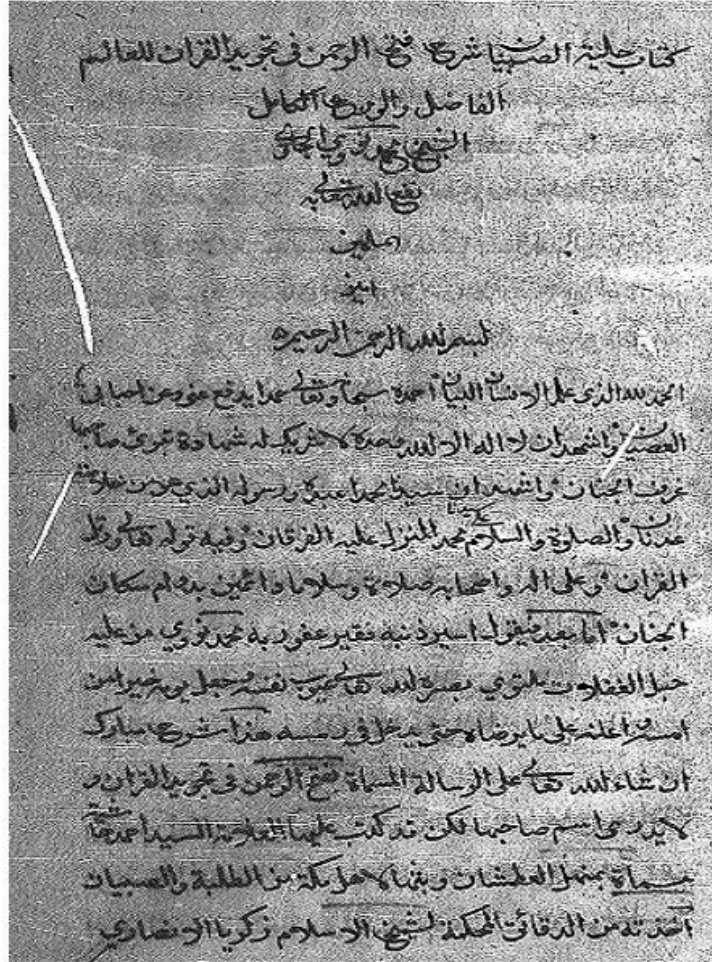 كتاب حلية الصبيان شرح فتح الرحمن في تجويد القران للعالم
الفاضل والورع الكامل
الشيخ محمد نووي الجاوي
نفع الله تعالى به
المسلمين
امين
بسم الله الرحمن الرحيم
الحمد لله الذي علم الانسان البيان احمده سبحانه وتعالى حمدا يدفع عنى وعن احبابى
العصيان واشهد ان لا اله الا الله وحده لا شريك له شهادة تبوئ صاحبها
غرف الجنان واشهد ان سيدنا محمدا عبده ورسوله الذي هو من خلاصة
عدنان والصلوة والسلام على سيدنا محمد المنزل عليه الفرقان وفيه قوله تعالى ورتل
القران وعلى اله واصحابه صلاة وسلاما دائمين بدوام سكان
الجنان اما بعد فيقول اسير ذنبه فقير عفو ربه محمد نووي من عليه
حبل الغفلات ملتوي بصره الله تعالى بعيوب نفسه وجعل يومه خيرا من
امسه واعانه على ما يرضاه حتى يدخل في رمسه هذا شرح مبارك
ان شاء الله تعالى على الرسالة المسماة فتح الرحمن في تجويد القران و
لا يدرى اسم صاحبها لكن قد كتب عليها العلامة السيد احمد حاشية
مسماة بمنهل العطشان وبثها لاهل مكة من الطلبة والصبيان
اخذته من الدقائق المحكمة لشيخ الاسلام زكريا الانصاري